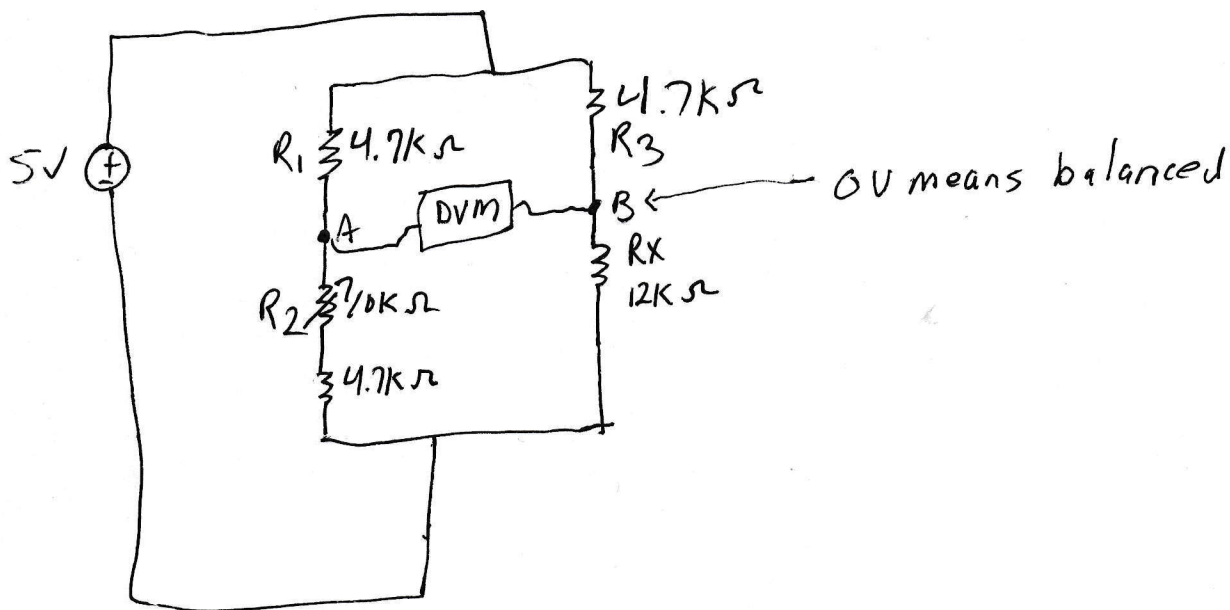 5V
R1 4.7KΩ
4.7KΩ
R3
A
DVM
B
0V means balanced
RX
12KΩ
R2 10KΩ
4.7KΩ